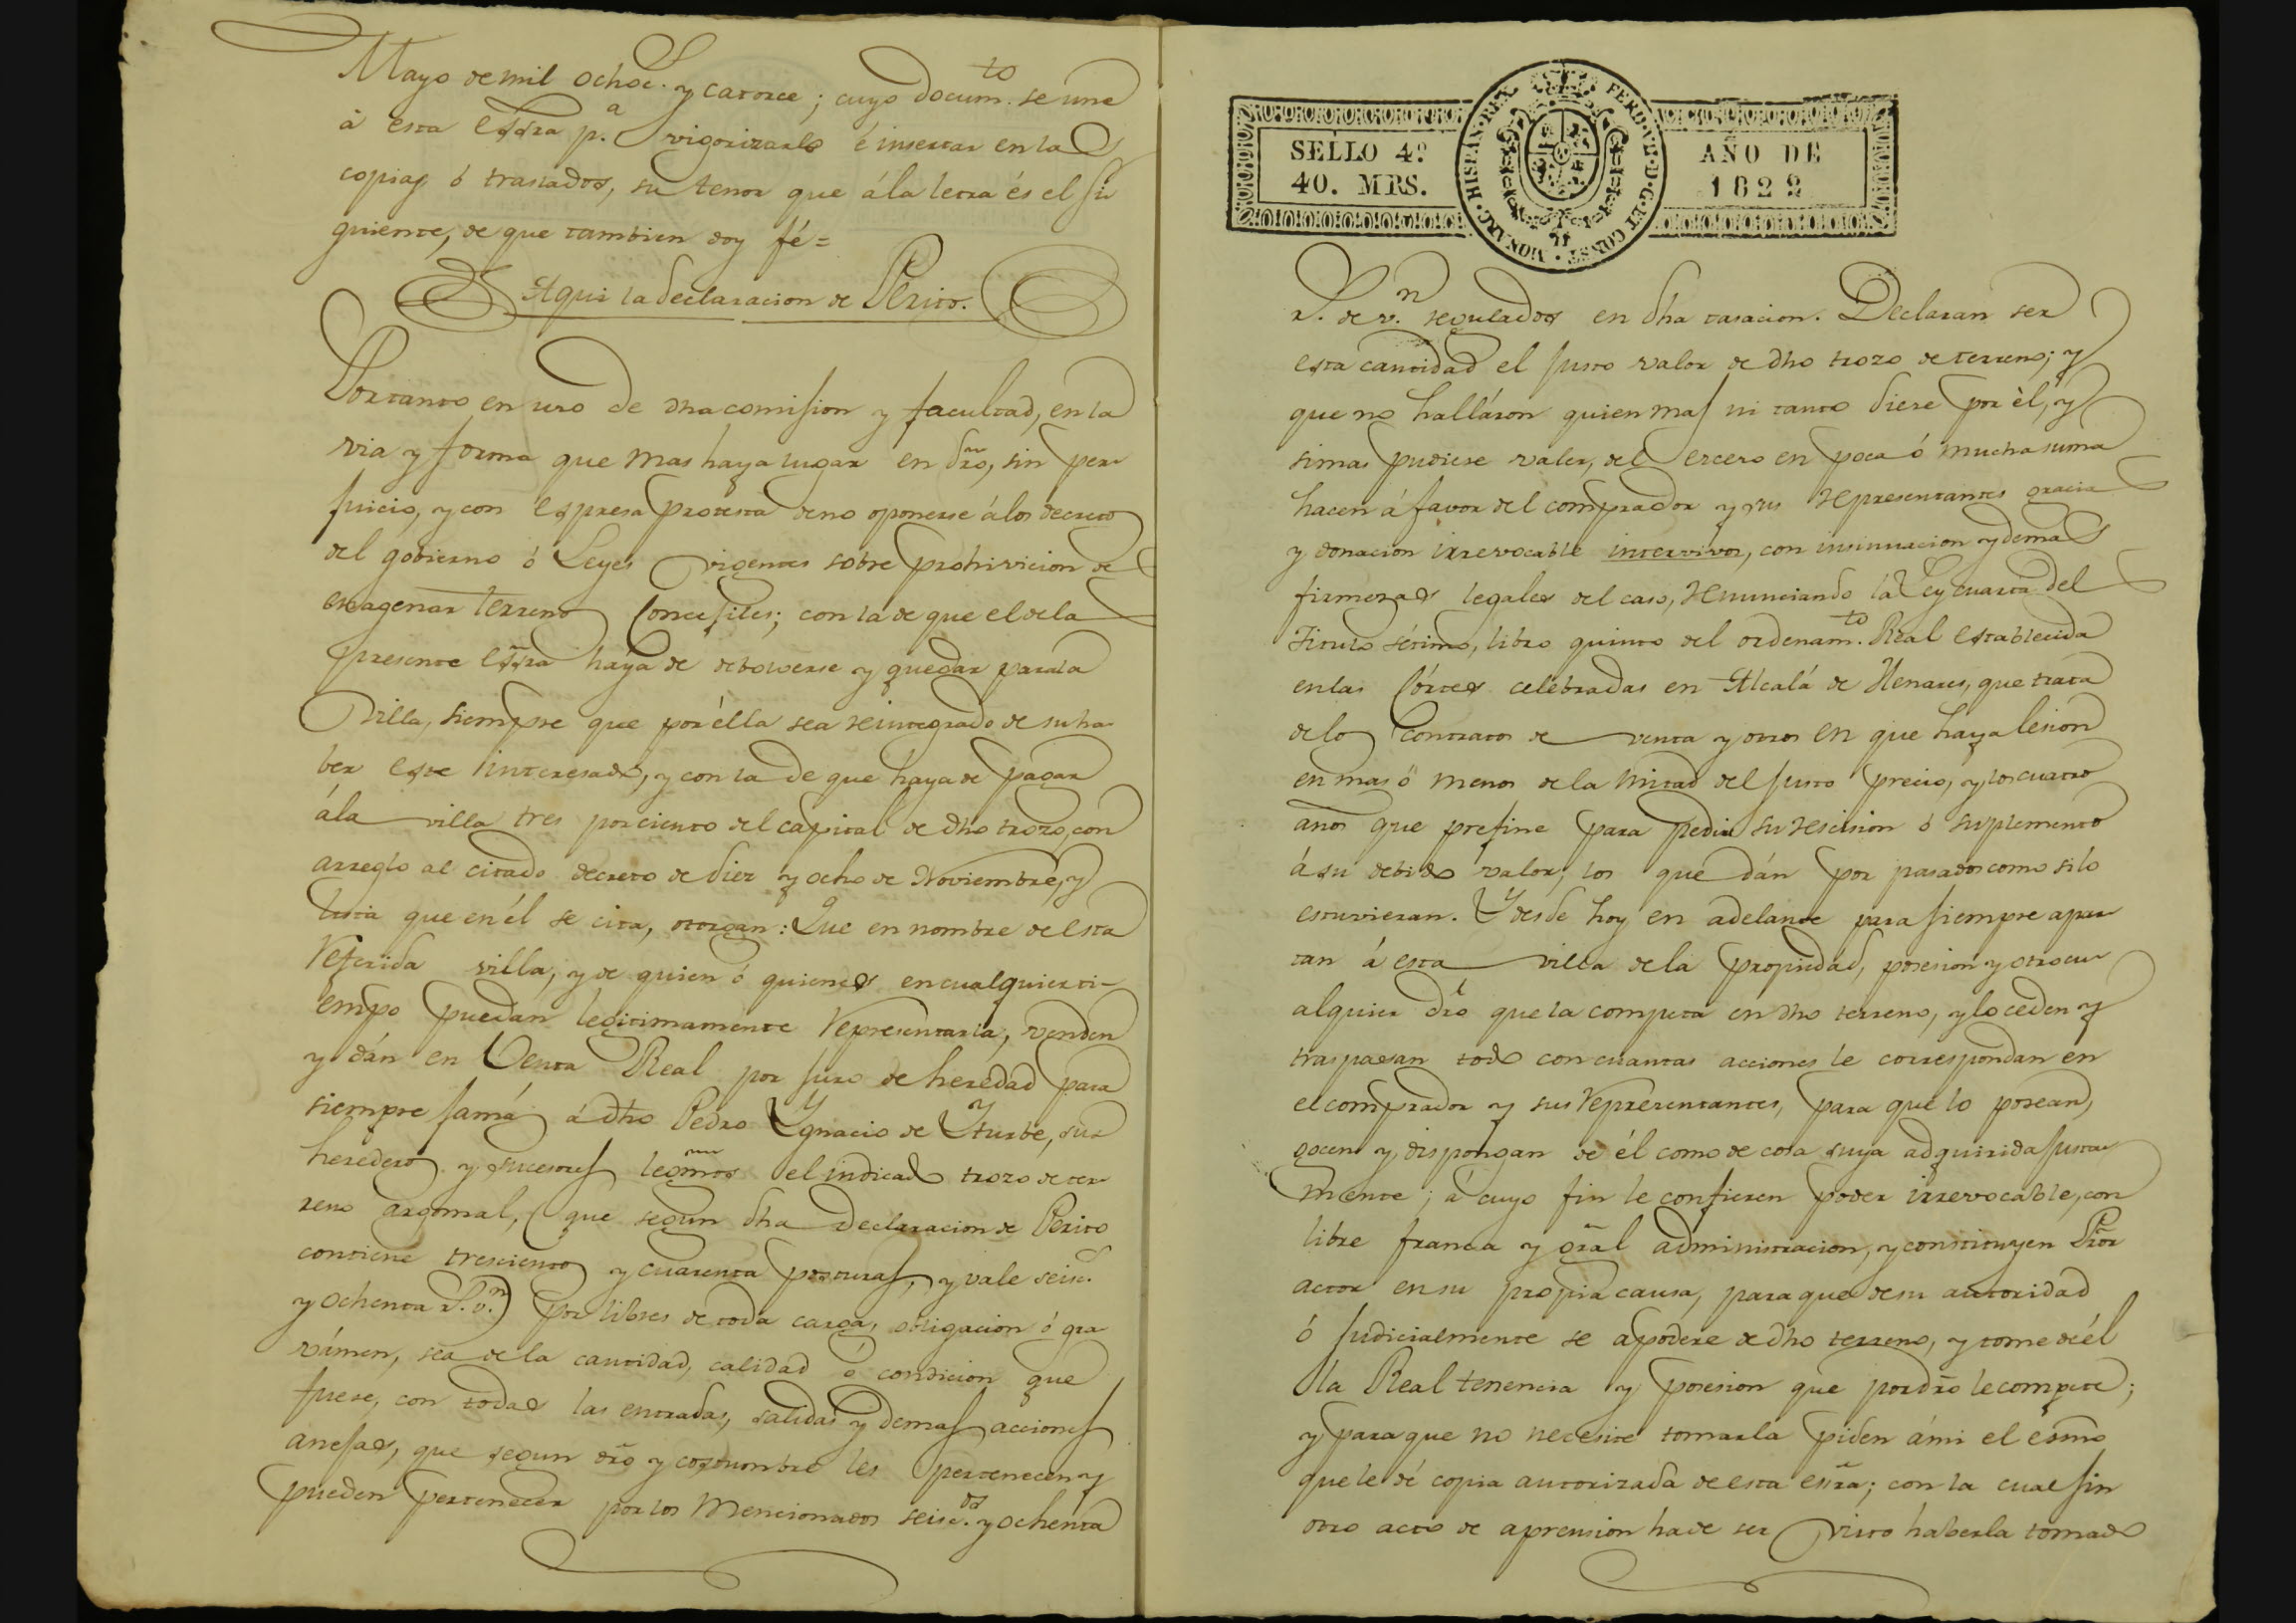 Mayo de mil ochoc.s y catorce; cuyo docum.to se une
á esta essra p.a vigorizarla é insertar en las
copias ó traslados, su tenor que á la letra és el si
guiente, de que tambien doy fé=
Aqui la declaracion de Perito.
Portanto en uso de dha comision y facultad, en la
via y forma que mas haya lugar en dro, sin per
juicio, y con espresa protesta de no oponerse á los decretos
del gobierno ó Leyes vigentes sobre prohivicion de
enagenar terrenos Concejiles; con la de que el de la
presente essra haya de debolverse y quedar para la
villa, siempre que por élla sea reintegrado de su ha
ber este interesado, y con la de que haya de pagar
á la villa tres por ciento del capital de dho trozo, con
arreglo al citado decreto de diez y ocho de Noviembre, y
que en él se cita, otorgan: Que en nombre de esta
referida villa, y de quien ó quienes en cualquier ti-
empo puedan legitimamente representarla, venden
y dán en Venta Real por juro de heredad para
siempre jamás á dho Pedro Ygnacio de Yturbe, sus
herederos y sucesores legmos el indicado trozo de ter
reno argomal, que segun dha declaracion de Perito
contiene trescientas y cuarenta posturas, y vale seisc.s
y ochenta r.s v.n) por libres de toda carga, obligacion ó gra
vámen, sea de la cantidad, calidad ó condicion que
fuese, con todas las entradas, salidas y demas acciones
anejas, que segun dro y costumbre les pertenecen y
pueden pertenecer por los mencionados seisc.os y ochenta
SELLO 4º
40. MRS.
HISPAN·REX· FERD·VII·D·G·ET CONST·MONARC·
AÑO DE
1822
r.s de v.n regulados en dha tasacion. Declaran ser
esta cantidad el justo valor de dho trozo de terreno; y
que no halláron quien mas ni tanto diese por él, y
si mas pudiese valer, del ecceso en poca ó mucha suma
hacen á favor del comprador y sus representantes gracia
y donacion irrevocable intervivos, con insinuacion y demas
firmezas legales del caso, renunciando la Ley cuarta del
Titulo sétimo, libro quinto del ordenam.to Real establecida
en las Córtes celebradas en Alcalá de Henares, que trata
de los contratos de venta y otros en que haya lesion
en mas ó menos de la mitad del justo precio, y los cuatro
años que prefine para pedir su rescision ó suplemento
á su debido valor, los que dán por pasados como si lo
estuvieran. Y desde hoy en adelante para siempre apar
tan á esta villa de la propiedad, posesion y otro cu
alquier dro que la competa en dho terreno, y lo ceden y
traspasan todo con cuantas acciones le correspondan en
el comprador y sus representantes, para que lo posean,
gocen y dispongan de él como de cosa suya adquirida justa
mente; á cuyo fin le confieren poder irrevocable, con
libre franca y gral administracion, y constituyen Pror
actor en su propia causa, para que de su autoridad
ó judicialmente se apodere de dho terreno, y tome de él
la Real tenencia y posesion que por dro le compete;
y para que no necesite tomarla piden á mi el esno
que le dé copia autorizada de esta essra; con la cual sin
otro acto de aprension ha de ser visto haberla tomado